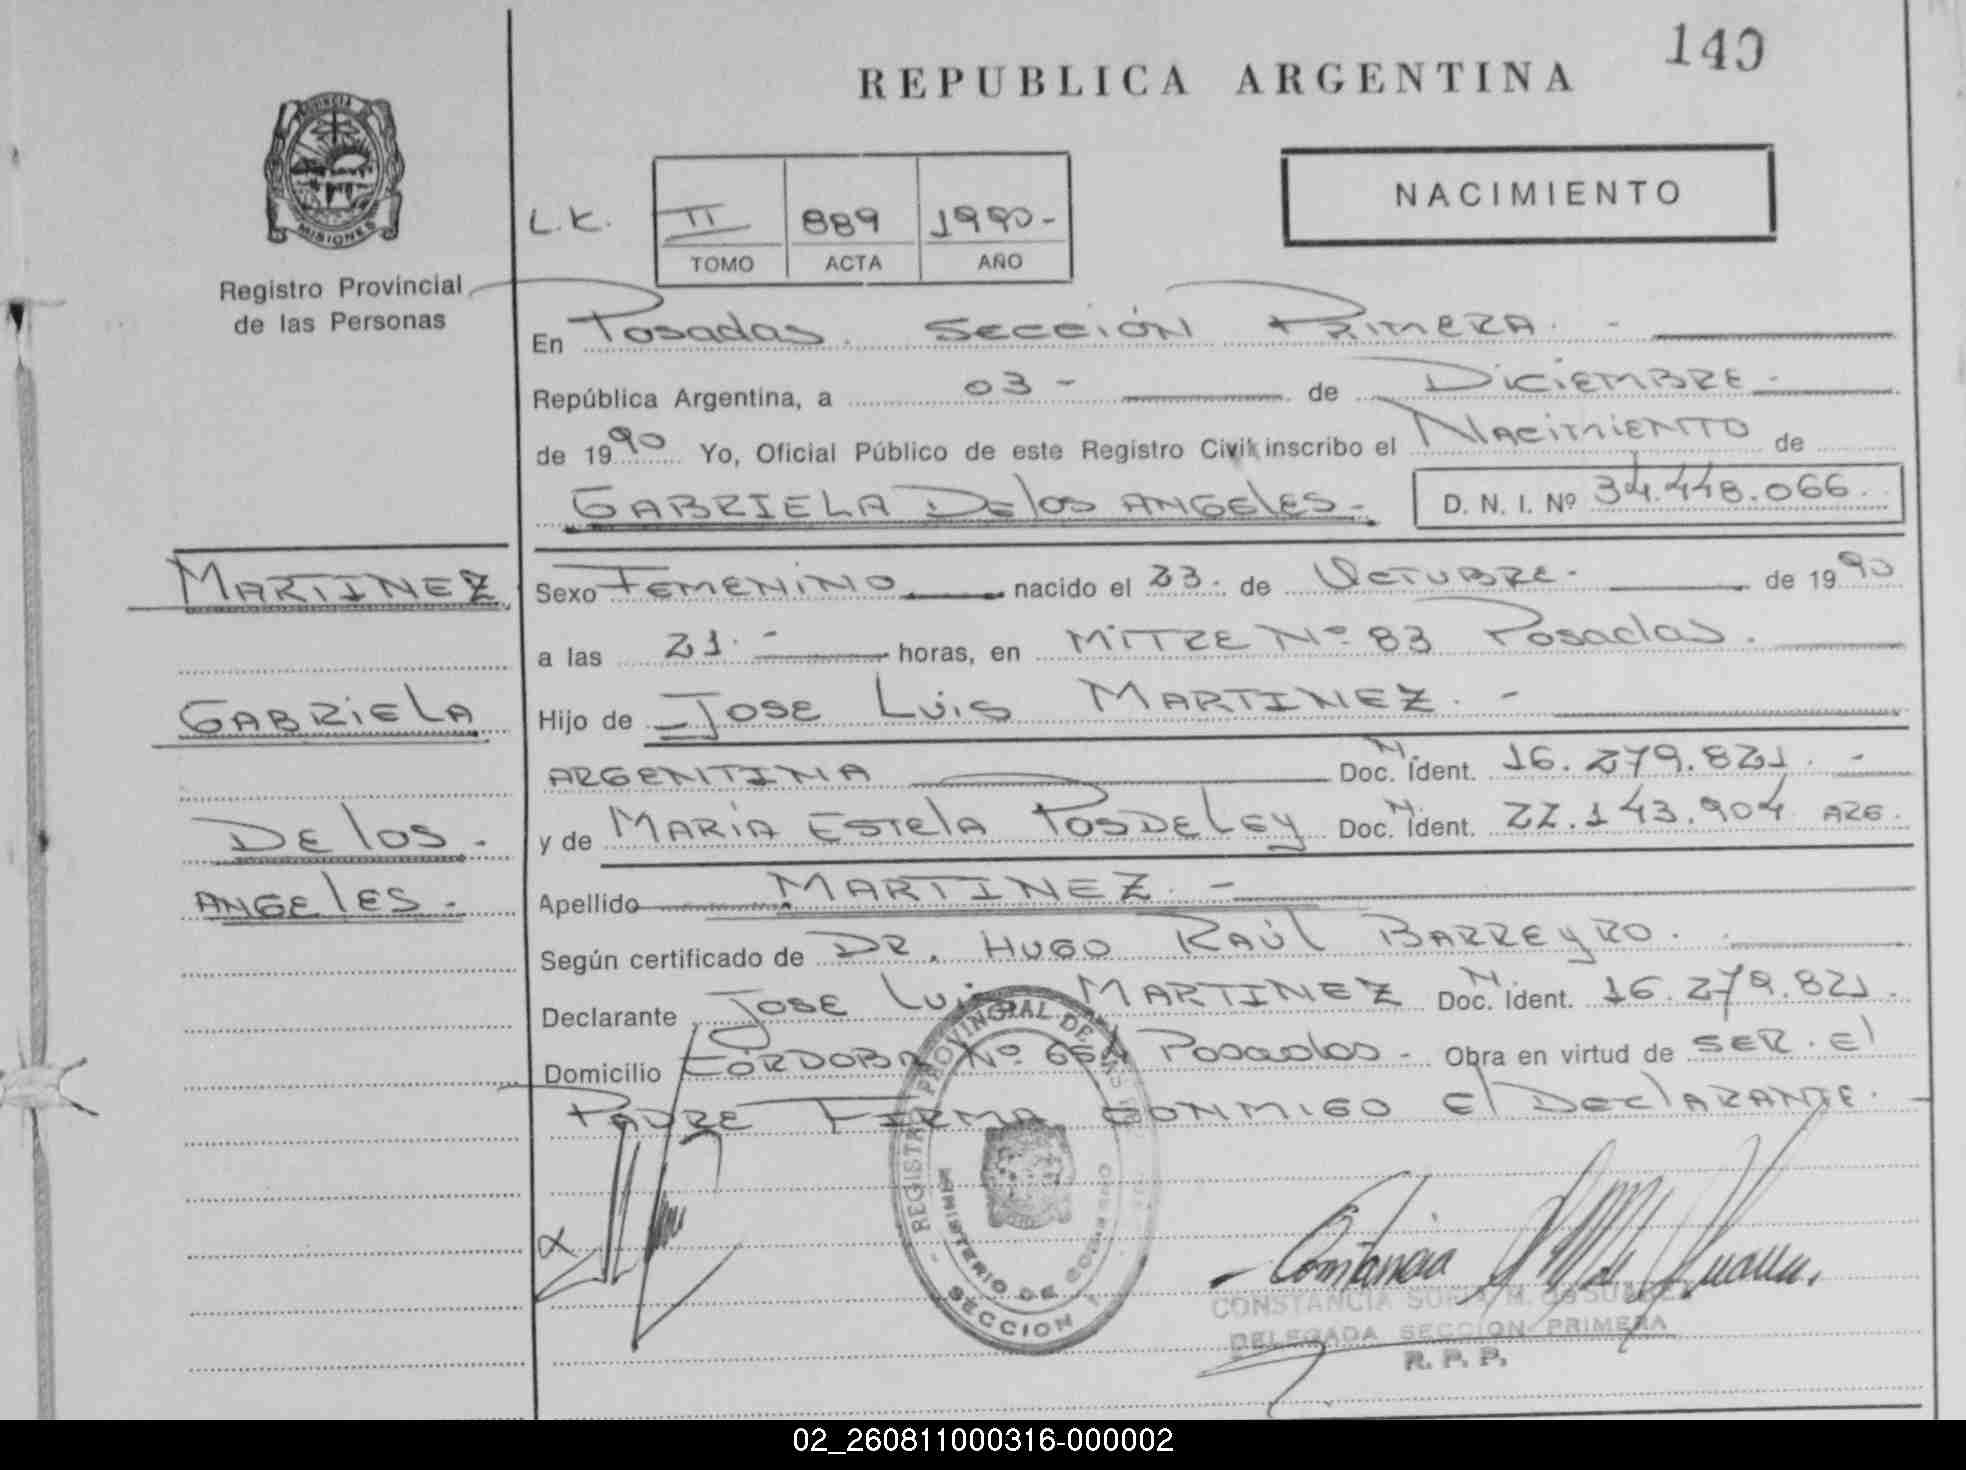 140
REPUBLICA ARGENTINA
PROVINCIA
MISIONES
Registro Provincial
de las Personas
NACIMIENTO
L.K. II 889 1990-
TOMO ACTA AÑO
En Posadas. Sección Primera. -
República Argentina, a 03 - de Diciembre -
de 1990 Yo, Oficial Público de este Registro Civil inscribo el Nacimiento de
GABRIELA De los ANGELES. - D. N. I. Nº 34.448.066.
MARTINEZ
GABRIELA
De los -
ANGELES. -
Sexo Femenino nacido el 23. de Octubre - de 1990
a las 21. - horas, en Mitre Nº 83 Posadas.
Hijo de Jose Luis MARTINEZ. -
ARGENTINA Doc. N. Ident. 16.279.821. -
y de María Estela Posdeley Doc. N. Ident. 22.143.904 ARG.
Apellido MARTINEZ. -
Según certificado de DR. Hugo Raúl Barreyro.
Declarante Jose Luis MARTINEZ Doc. N. Ident. 16.279.821.
Domicilio Córdoba Nº Posadas - Obra en virtud de ser. el
Padre Firma conmigo el Declarante. -
REGISTRO PROVINCIAL DE LAS
MINISTERIO DE GOBIERNO
SECCION 1
Constancia
CONSTANCIA M. de SUAREZ
DELEGADA SECCION PRIMERA
R. P. P.
02_260811000316-000002